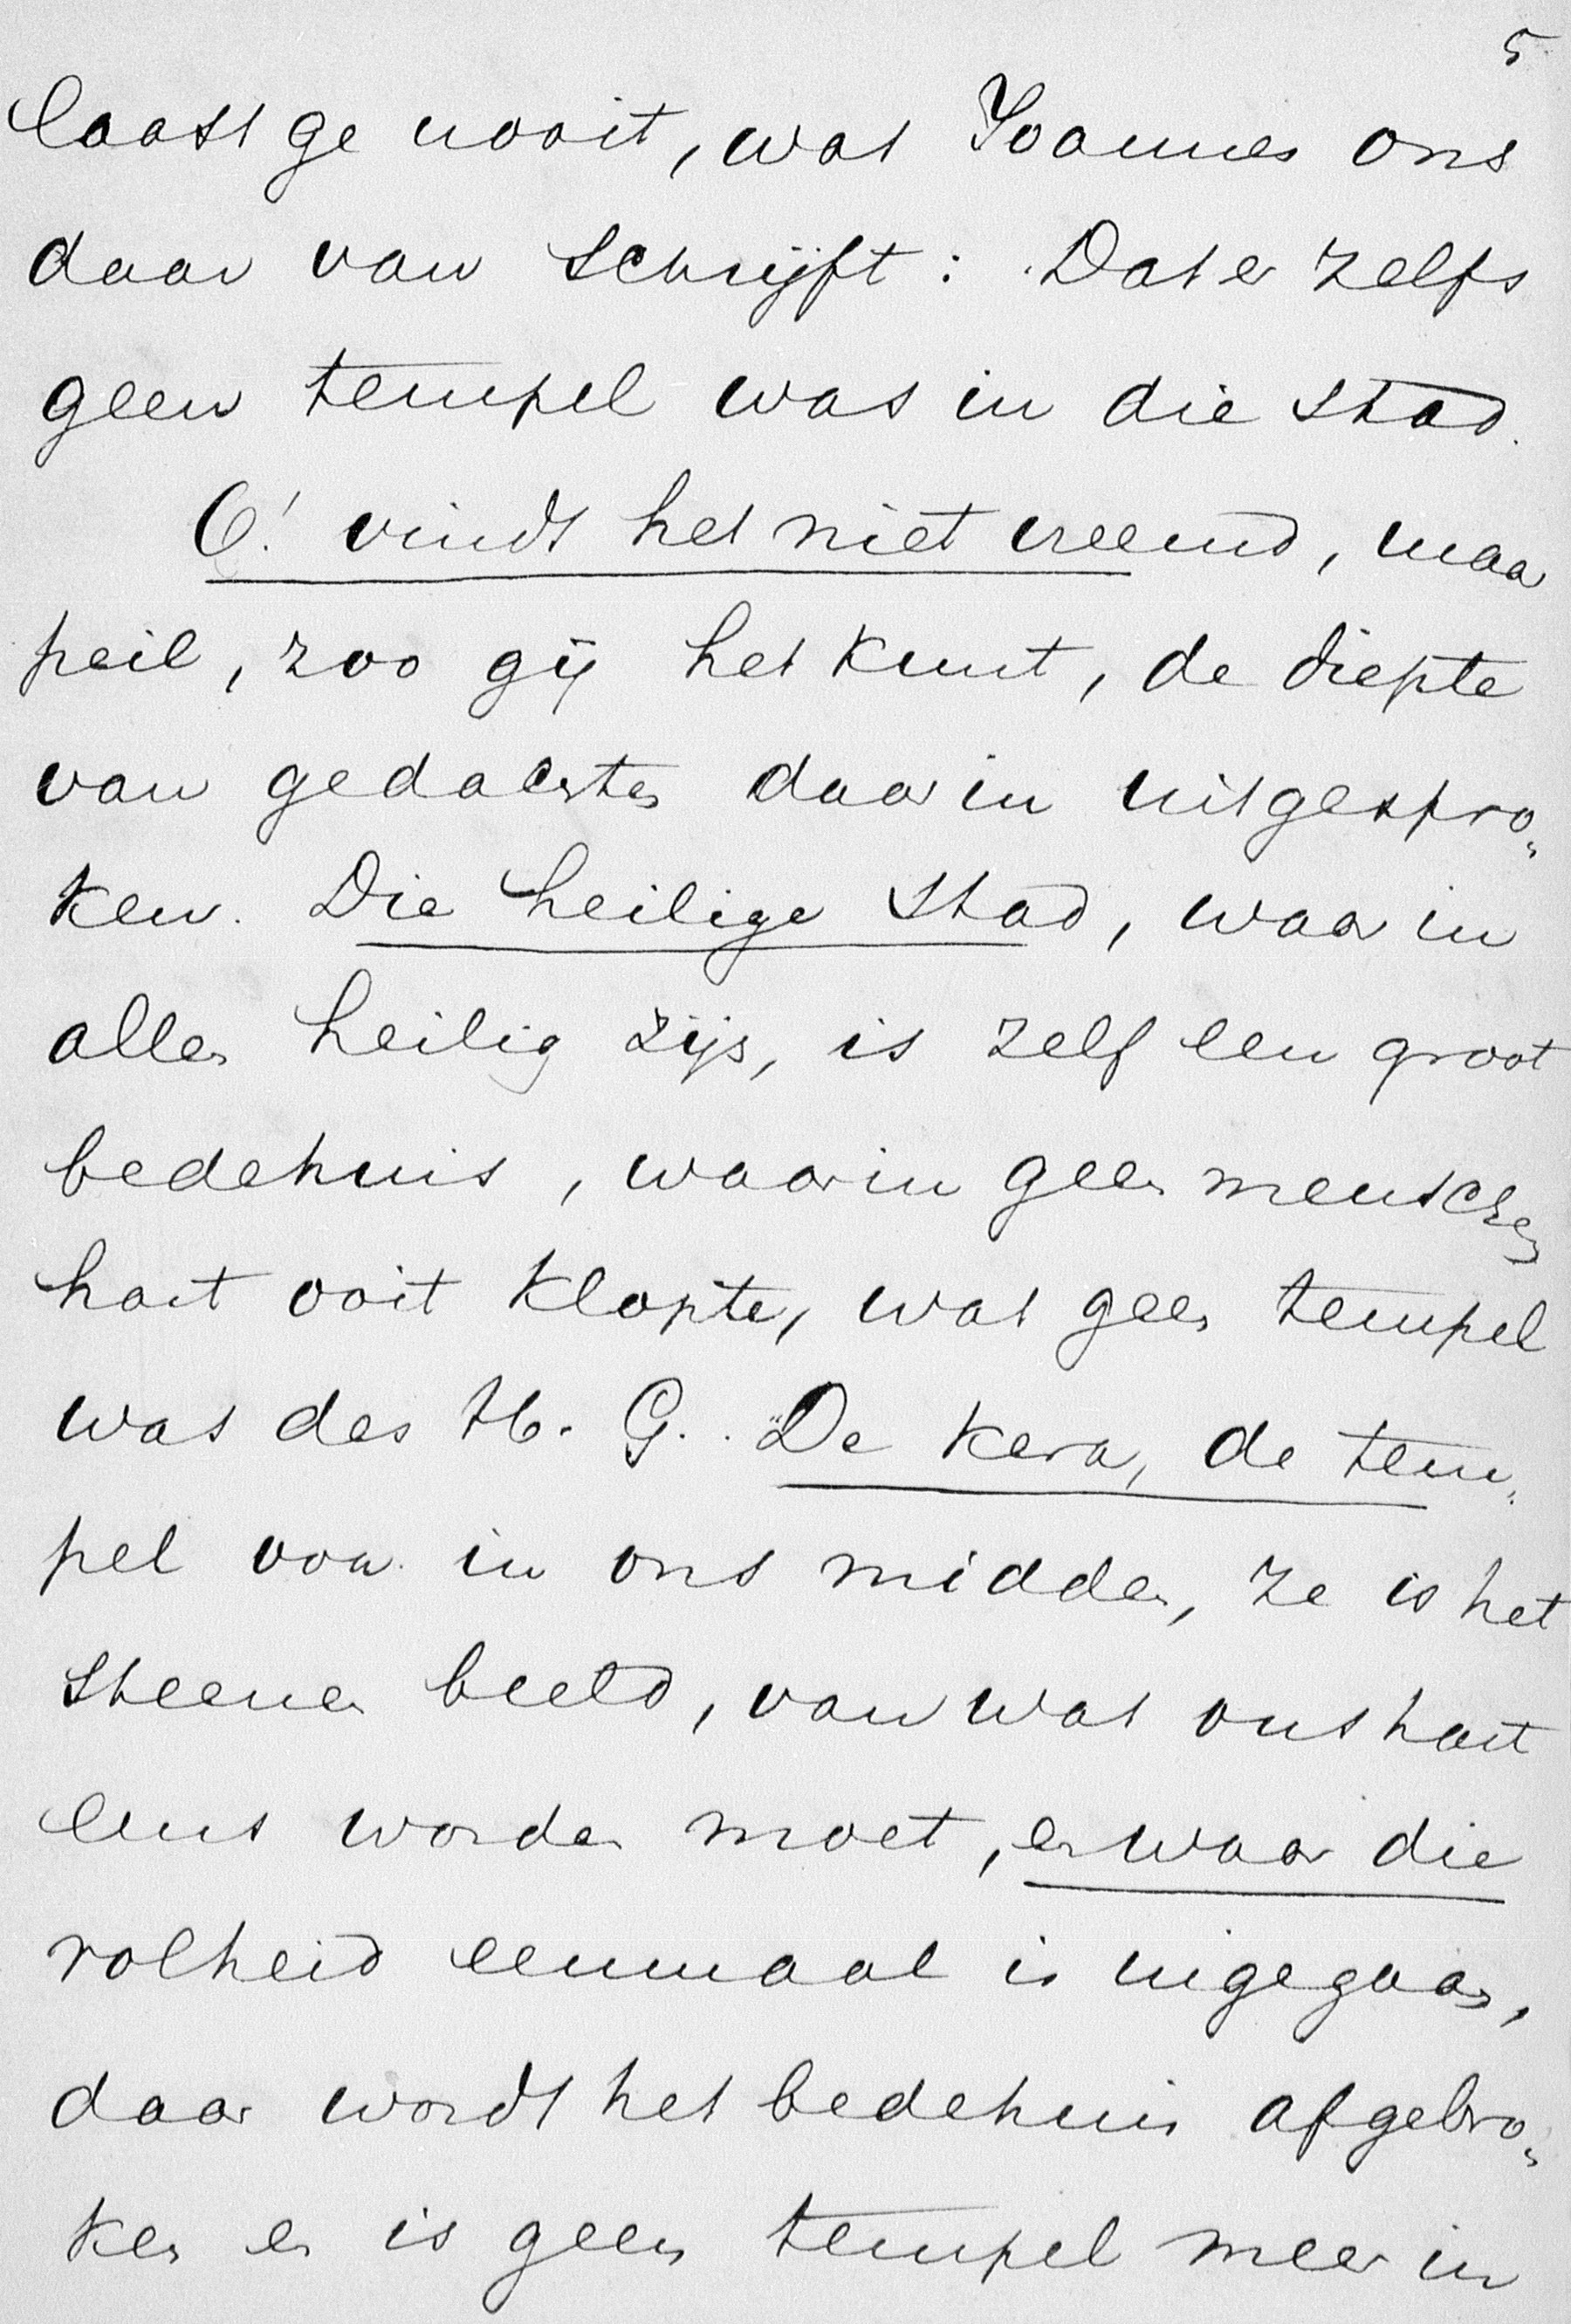 5
laast ge nooit, wat Joannes ons
daar van schrijft: Dat er zelfs
geen tempel was in die stad.
O! vindt het niet vreemd, maar
peil, zoo gij het kunt, de diepte
van gedachten daarin uitgespro„
ken. Die heilige stad, waar in
allen heilig zijn, is zelf een groot
bedehuis, waarin geen menschen
hart ooit klopte, wat geen tempel
was des H. G. De kerk, de tem„
pel van in ons midden, ze is het
steenen beeld, van wat ons hart
eens worden moet, en waar die
volheid eenmaal is ingegaan,
daar wordt het bedehuis afgebro„
ken en is geen tempel meer in